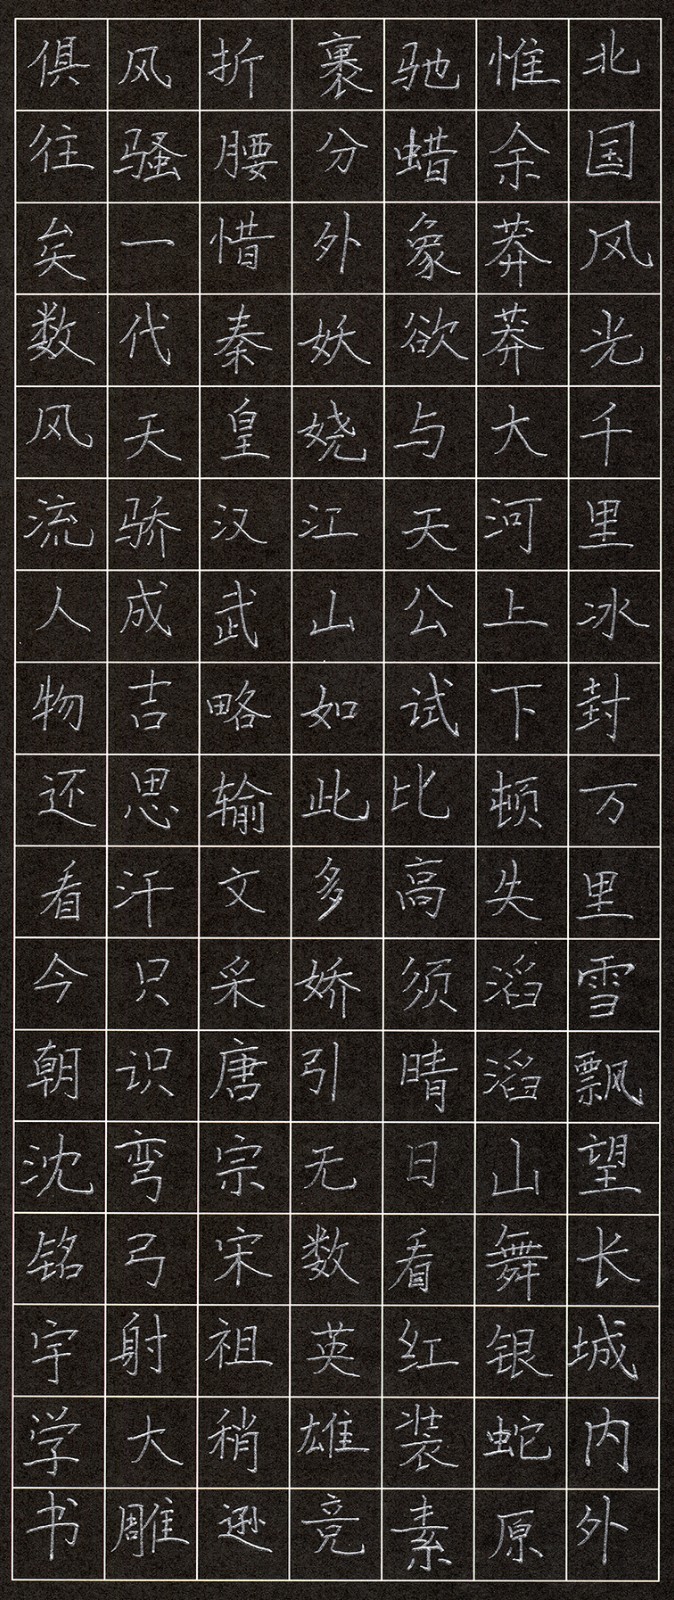 北国风光千里冰封万里雪飘望长城内外
惟余莽莽大河上下顿失滔滔山舞银蛇原
驰蜡象欲与天公试比高须晴日看红装素
裹分外妖娆江山如此多娇引无数英雄竞
折腰惜秦皇汉武略输文采唐宗宋祖稍逊
风骚一代天骄成吉思汗只识弯弓射大雕
俱往矣数风流人物还看今朝沈铭宇学书